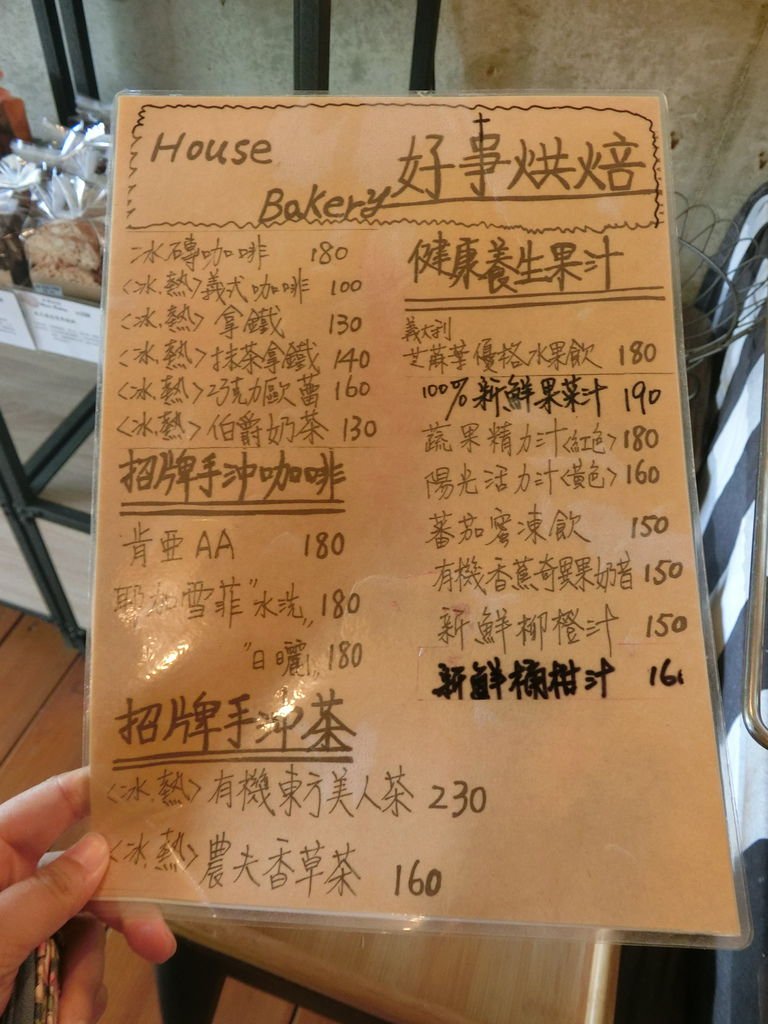 House
Bakery
好事烘焙
冰磚咖啡 180
<冰.熱>義式咖啡 100
<冰.熱>拿鐵 130
<冰.熱>抹茶拿鐵 140
<冰.熱>巧克力歐蕾 160
<冰.熱>伯爵奶茶 130
招牌手沖咖啡
肯亞AA 180
耶加雪菲"水洗" 180
"日曬" 180
招牌手沖茶
<冰.熱>有機東方美人茶 230
<冰.熱>農夫香草茶 160
健康養生果汁
義大利
芝麻葉優格水果飲 180
100%新鮮果菜汁 190
蔬果精力汁<紅色> 180
陽光活力汁<黃色> 160
蕃茄蜜凍飲 150
有機香蕉奇異果奶昔 150
新鮮柳橙汁 150
新鮮桶柑汁